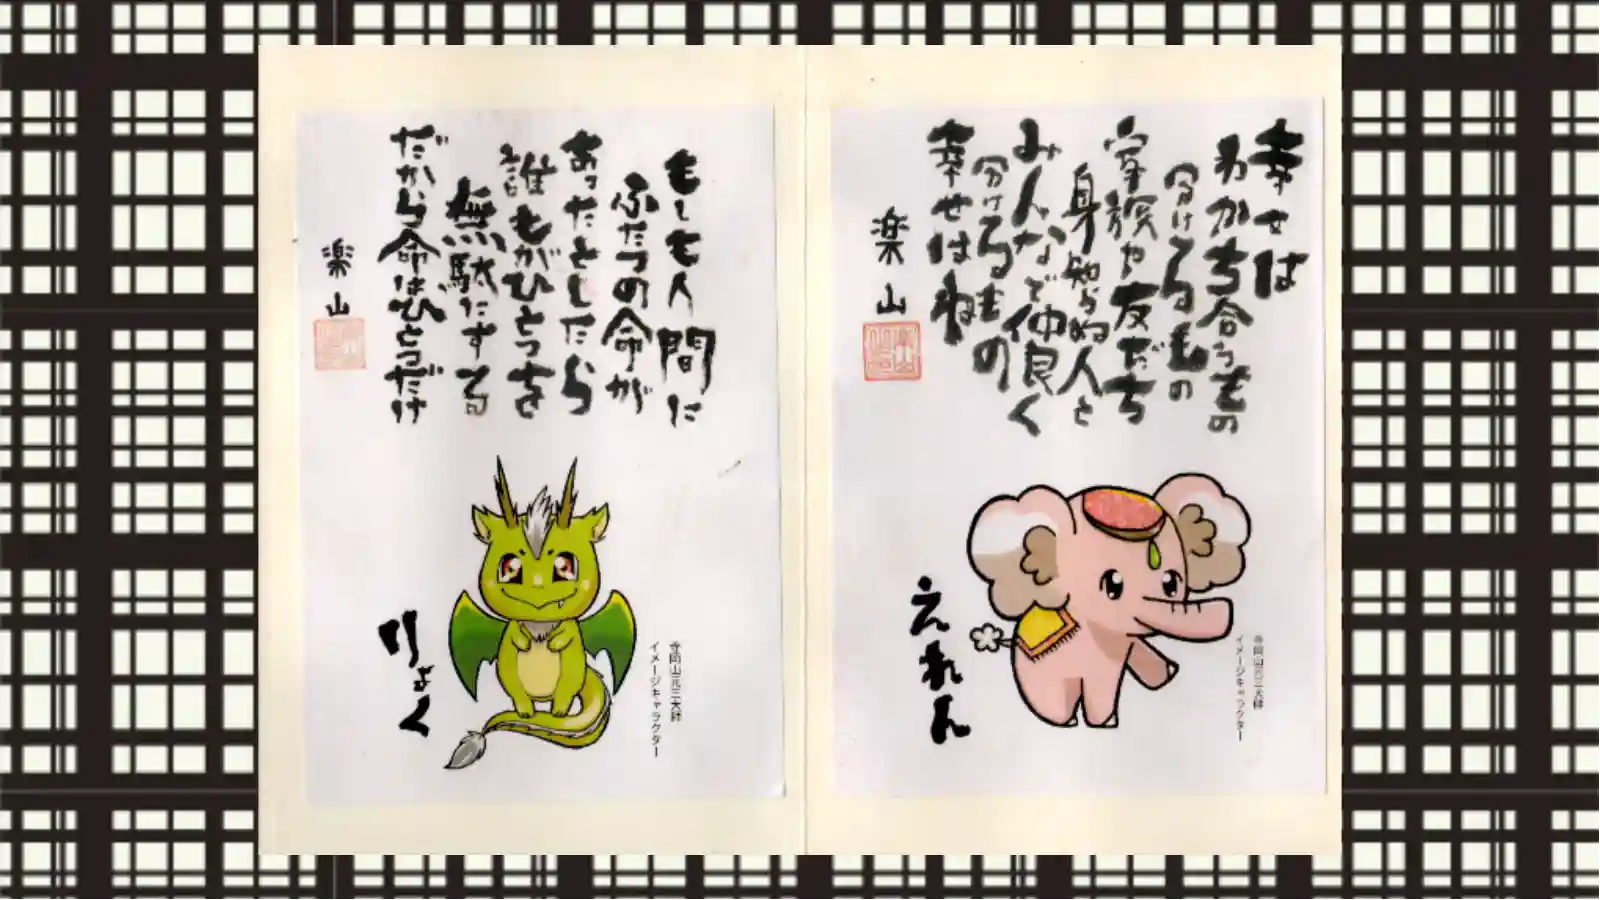 幸せは
わかち合うもの
分けてるもの
家族や友だち
身知らぬ人と
みんなで仲良く
分けるもの
幸せはね
楽山
えれん
寺岡山元三大師
イメージキャラクター
もしも人間に
ふたつの命が
あったとしたら
誰もがひとつを
無駄にする
だから命はひとつだけ
楽山
りょく
寺岡山元三大師
イメージキャラクター